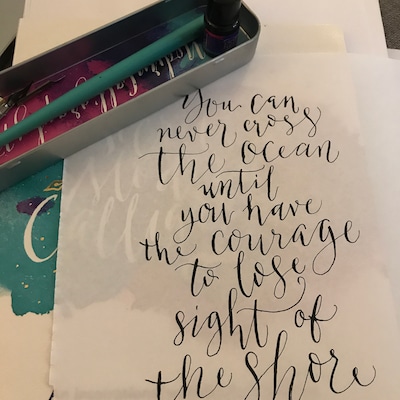 You can
never cross
the ocean
until
you have
the courage
to lose
sight of
the shore